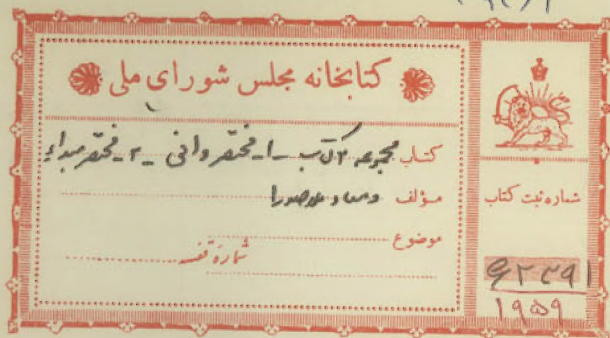 کتابخانه مجلس شورای ملی
کتاب مجموعه ۲ کتاب ـ ۱ـ مختصر وافی ـ ۲ـ مختصر مبداء
مؤلف ومعاد ملاصدرا
موضوع
شماره قفسه
شماره ثبت کتاب
۶۲۳۹۱
۱۹۵۹